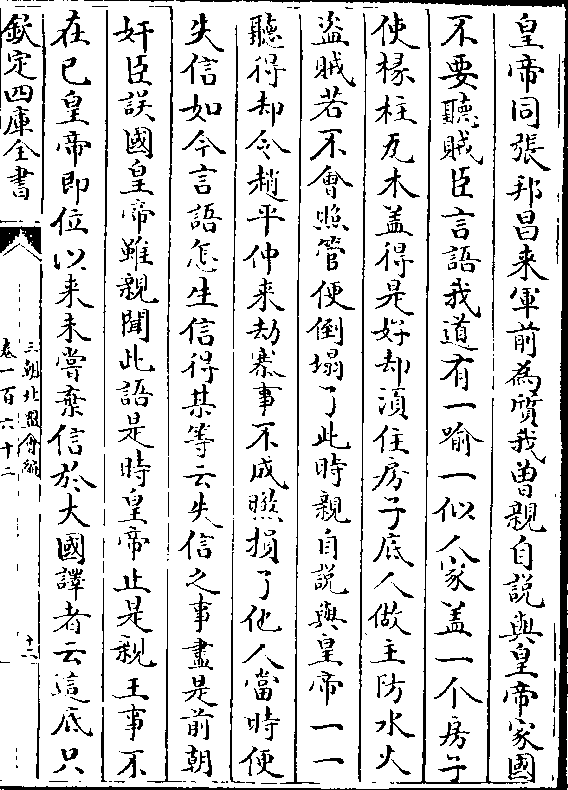 皇帝同張邦昌来軍前為質我曽親自説與皇帝家國
不要聽賊臣言語我道有一喻一似人家盖一个房子
使椽柱瓦木盖得是好却湏住房子底人做主防水火
盗賊若不會照管便倒塌了此時親自説與皇帝一一
聽得却令趙平仲来劫寨事不成煞損了他人當時便
失信如今言語怎生信得某等云失信之事盡是前朝
奸臣誤國皇帝雖親聞此語是時皇帝止是親王事不
在已皇帝即位以来未嘗棄信於大國譯者云這底只
欽定四庫全書
三朝北盟會編
卷一百六十二
十二